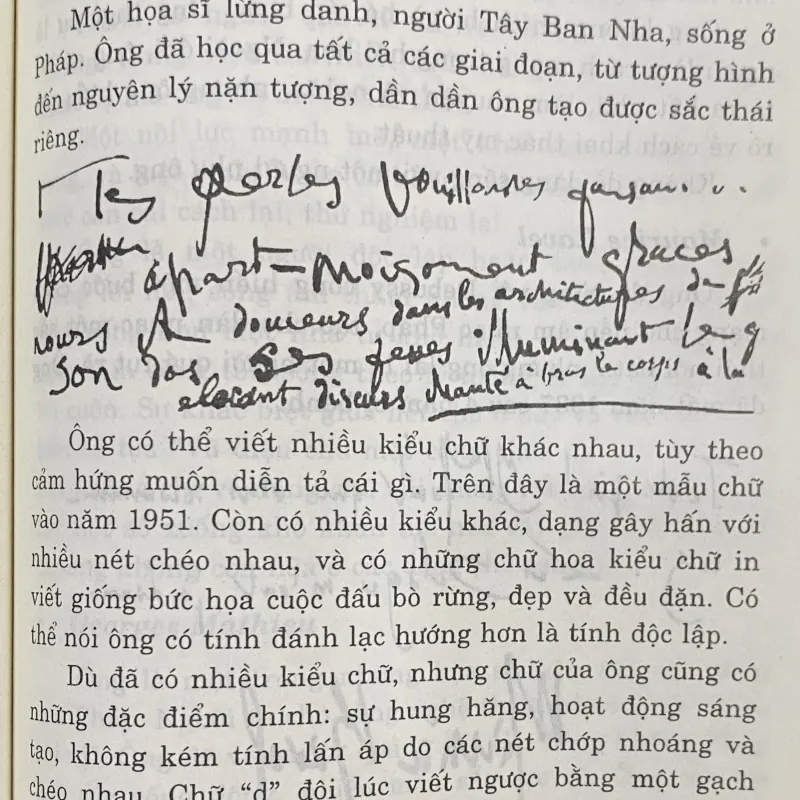 Một họa sĩ lừng danh, người Tây Ban Nha, sống ở
Pháp. Ông đã học qua tất cả các giai đoạn, từ tượng hình
đến nguyên lý nặn tượng, dần dần ông tạo được sắc thái
riêng.
les perles
apart grâces
douceurs dans les architectures
son dos ses illuminant
discours à bras le corps à la
Ông có thể viết nhiều kiểu chữ khác nhau, tùy theo
cảm hứng muốn diễn tả cái gì. Trên đây là một mẫu chữ
vào năm 1951. Còn có nhiều kiểu khác, dạng gây hấn với
nhiều nét chéo nhau, và có những chữ hoa kiểu chữ in
viết giông bức họa cuộc đấu bò rừng, đẹp và đều đặn. Có
thể nói ông có tính đánh lạc hướng hơn là tính độc lập.
Dù đã có nhiều kiểu chữ, nhưng chữ của ông cũng có
những đặc điểm chính: sự hung hăng, hoạt động sáng
tạo, không kém tính lấn áp do các nét chớp nhoáng và
chéo nhau. Chữ “d” đôi lúc viết ngược bằng một gạch